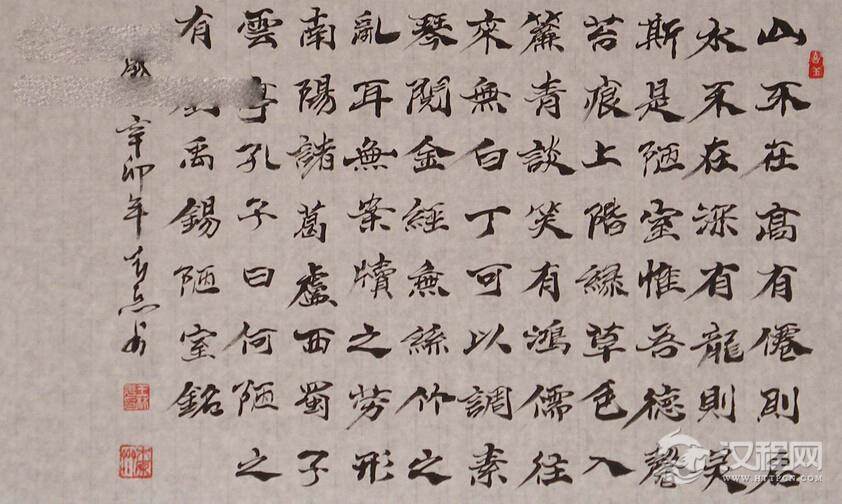 山不在高有僊則
水不在深有龍則灵
斯是陋室惟吾德馨
苔痕上階緑草色入
簾青談笑有鴻儒往
來無白丁可以調素
琴閱金經無絲竹之
亂耳無案牘之勞形
南陽諸葛廬西蜀子
雲亭孔子曰何陋之
有劉禹錫陋室銘
辛卯年
汉程网
HTTPCN.COM